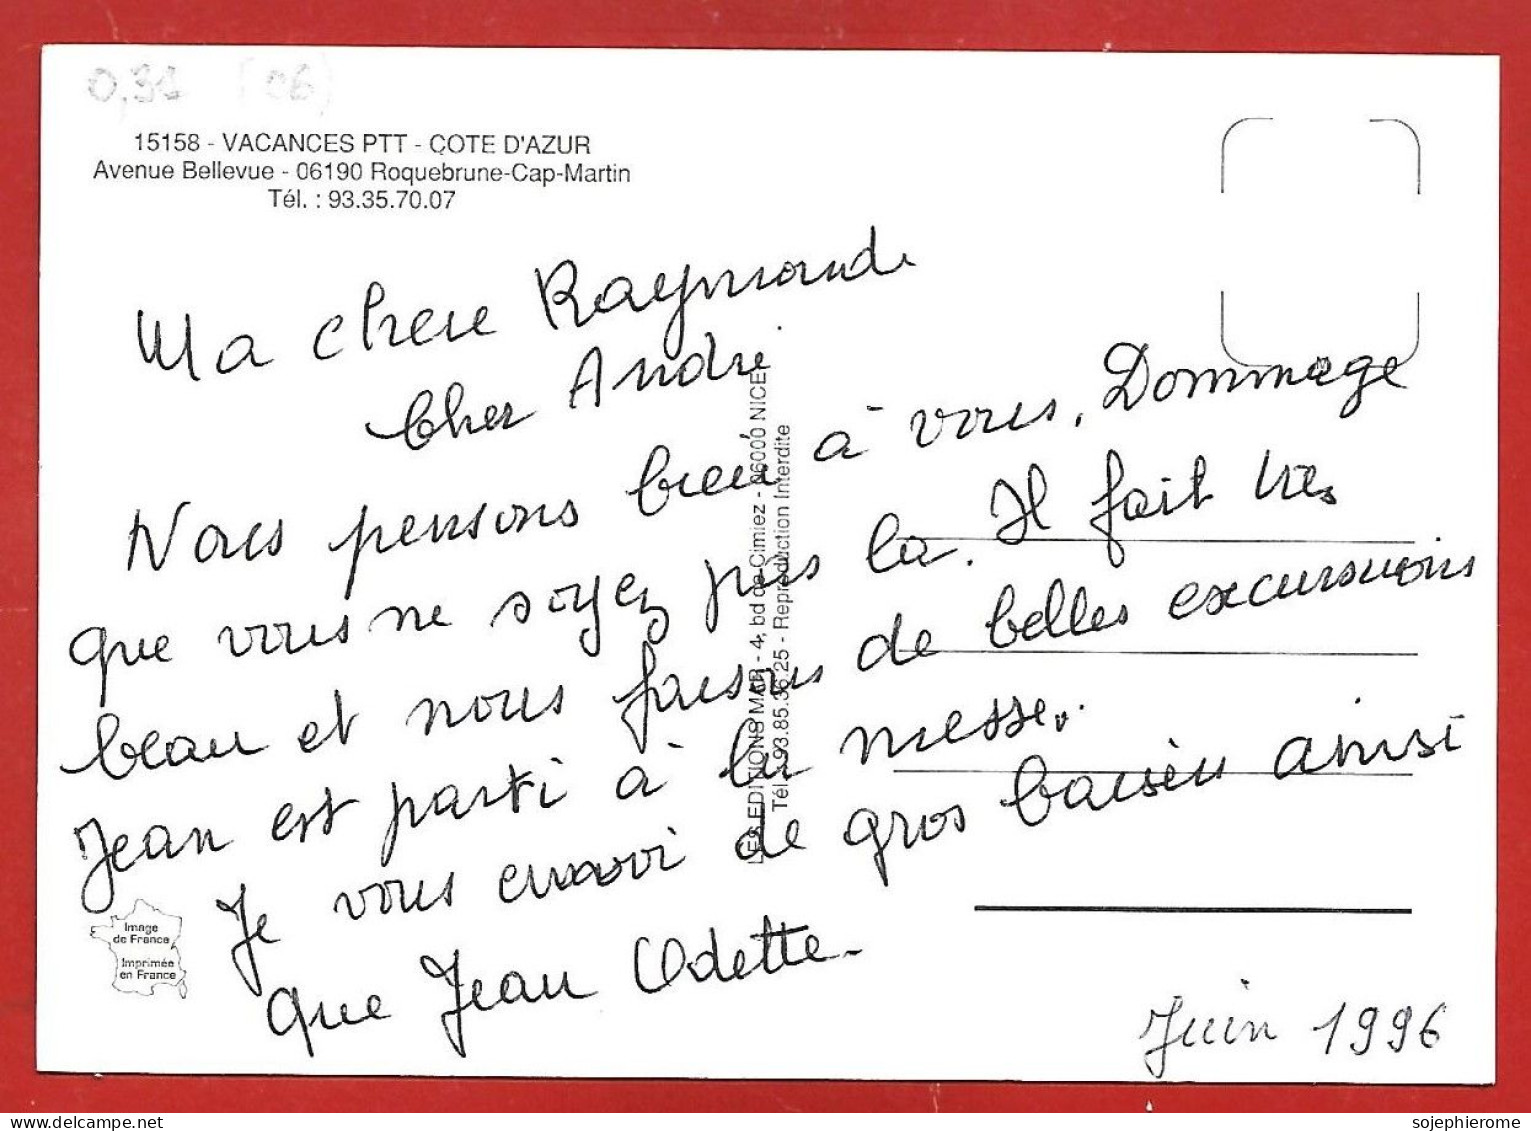 0,31 (06)
15158 - VACANCES PTT - COTE D'AZUR
Avenue Bellevue - 06190 Roquebrune-Cap-Martin
Tél. : 93.35.70.07
Ma chere Raymonde
Cher André
Nous pensons bien à vous. Dommage
que vous ne soyez pas la. Il fait tres
beau et nous faisons de belles excursions
Jean est parti à la messe.
Je vous envoi de gros baisers ainsi
que Jean Odette.
Juin 1996
LES EDITIONS MAR - 4, bd de Cimiez - 06000 NICE
Tél. 93.85.36.25 - Reproduction Interdite
Image
de France
Imprimée
en France
sojephierome